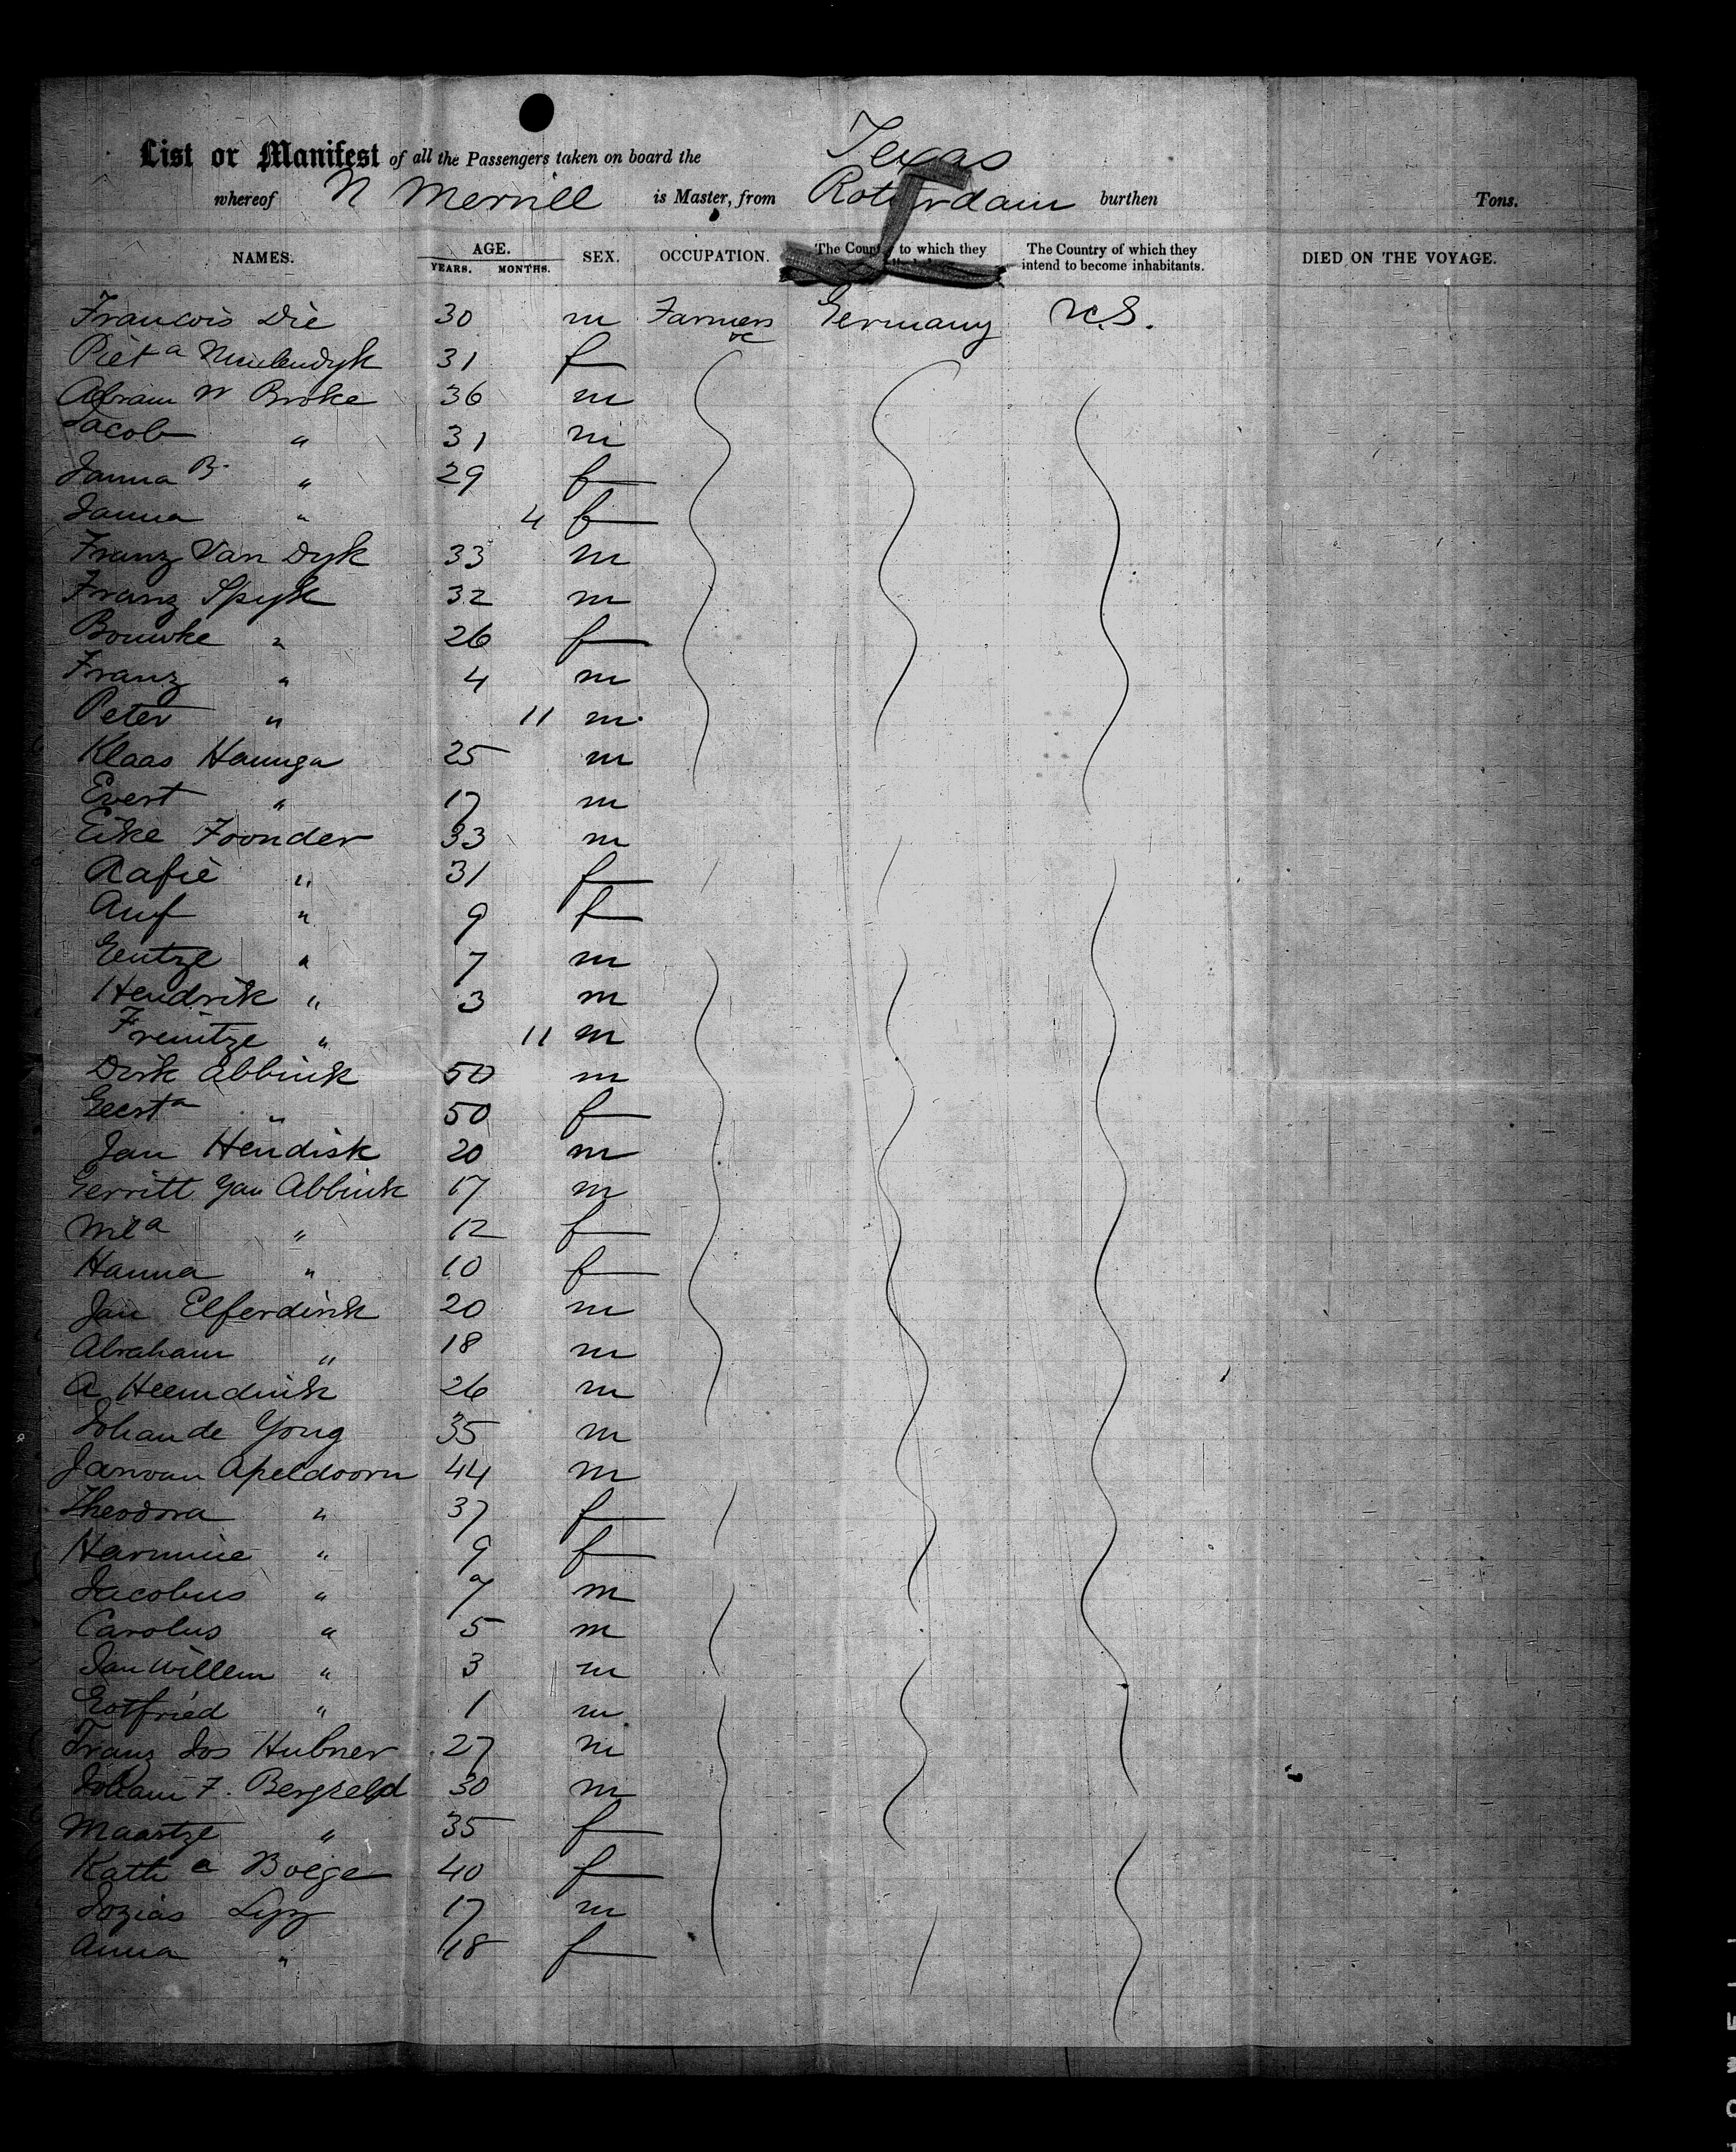 List or Manifest of all the Passengers taken on board the Texas
whereof N Merrill is Master, from Rotterdam burthen Tons.
NAMES. AGE. YEARS. MONTHS. SEX. OCCUPATION. The Country to which they The Country of which they intend to become inhabitants. DIED ON THE VOYAGE.
Francois Die 30 m Farmers &c Germany U.S.
Piet a Meulendyk 31 f
Abram W Broke 36 m
Jacob " 31 m
Janna B. " 29 f
Janna " 4 f
Franz Van Dyk 33 m
Franz Spyk 32 m
Bouwke " 26 f
Franz " 4 m
Peter " 11 m
Klaas Haunga 25 m
Evert " 17 m
Eike Foonder 33 m
Aafie " 31 f
Auf " 9 f
Eentze " 7 m
Hendrik " 3 m
Freintze " 11 m
Dirk Abbink 50 m
Geert a " 50 f
Jan Hendisk 20 m
Gerritt Yan Abbink 17 m
Mil a " 12 f
Hanna " 10 f
Jan Elferdink 20 m
Abraham " 18 m
A Heemdink 26 m
Johan de Yong 35 m
Jan van Apeldoorn 44 m
Theodora " 37 f
Harmine " 9 f
Jacobus " 7 m
Carolus " 5 m
Jan Willem " 3 m
Gotfried " 1 m
Franz Jos Hubner 27 m
Johann F. Bergfeld 30 m
Maartze " 35 f
Kath a Boege 40 f
Jozias 17 m
Anna " 18 f